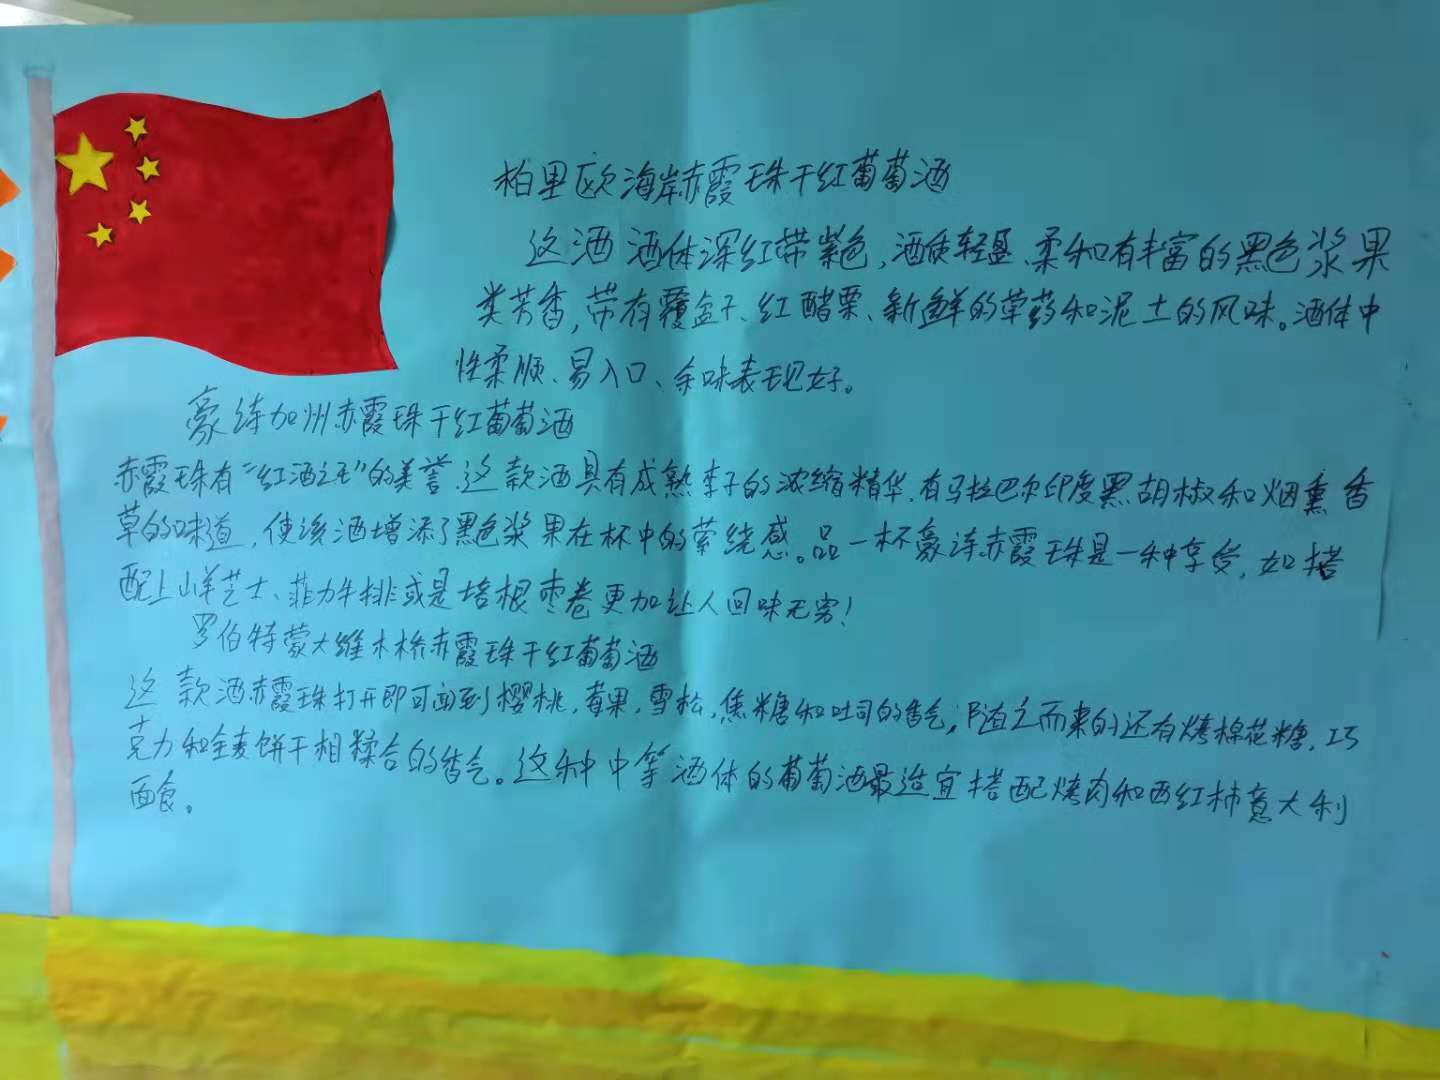 柏里欧海岸赤霞珠干红葡萄酒
这酒酒体深红带紫色,酒质轻盈、柔和有丰富的黑色浆果
类芳香,带有覆盆子、红醋栗、新鲜的草药和泥土的风味。酒体中
性柔顺、易入口、余味表现好。
豪诗加州赤霞珠干红葡萄酒
赤霞珠有“红酒之王”的美誉.这款酒具有成熟李子的浓缩精华.有马拉巴尔印度黑胡椒和烟熏香
草的味道,使该酒增添了黑色浆果在杯中的萦绕感。品一杯豪诗赤霞珠是一种享受,如搭
配上山羊芝士、菲力牛排或是培根枣卷更加让人回味无穷!
罗伯特蒙大维木桥赤霞珠干红葡萄酒
这款酒赤霞珠打开即可闻到樱桃,莓果,雪松,焦糖和吐司的香气,随之而来的还有烤棉花糖,巧
克力和全麦饼干相糅合的香气。这种中等酒体的葡萄酒最适宜搭配烤肉和西红柿意大利
面食。